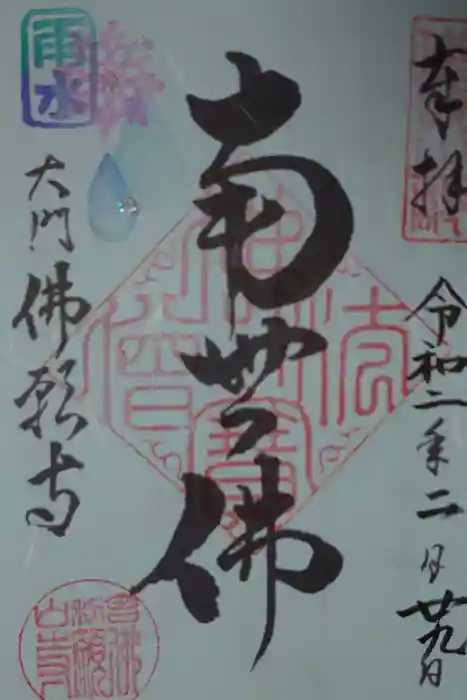 奉拝
令和二年二月廿九日
南無佛
雨水
大門
佛願寺